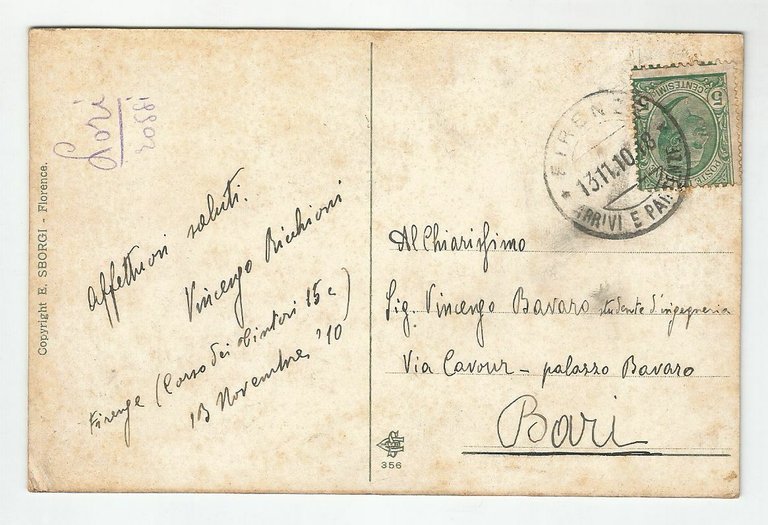 Lori
18502
Copyright E. SBORGI - Florence.
affettuosi saluti.
Vincenzo Ricchioni
Firenze (Corso dei Tintori 15 c)
13 Novembre '10
356
5
CENTESIMI
POSTE
FIRENZE
13.11.10.
ARRIVI E PARTENZE
Al Chiarissimo
Sig. Vincenzo Bavaro studente d'ingegneria
Via Cavour - palazzo Bavaro
Bari